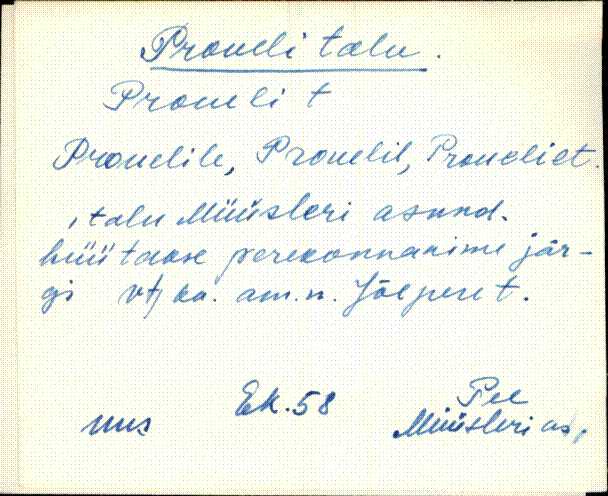 Proueli talu.
Proueli t
Prouelile, Prouelil, Proueliet.
, talu Müüsleri asund.
hüütakse perekonnanime jär-
gi vt, ka. am.n. Jõepere t.
Ek. 58 Pee
uus Müüsleri as,